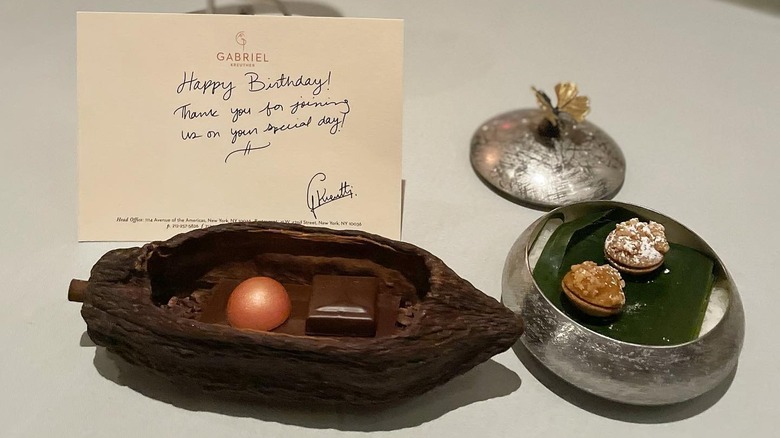 GABRIEL
KREUTHER
Happy Birthday!
Thank you for joining
us on your special day!
GKreuther
Head Office: 1114 Avenue of the Americas, New York, NY 10036
New York, NY 10036